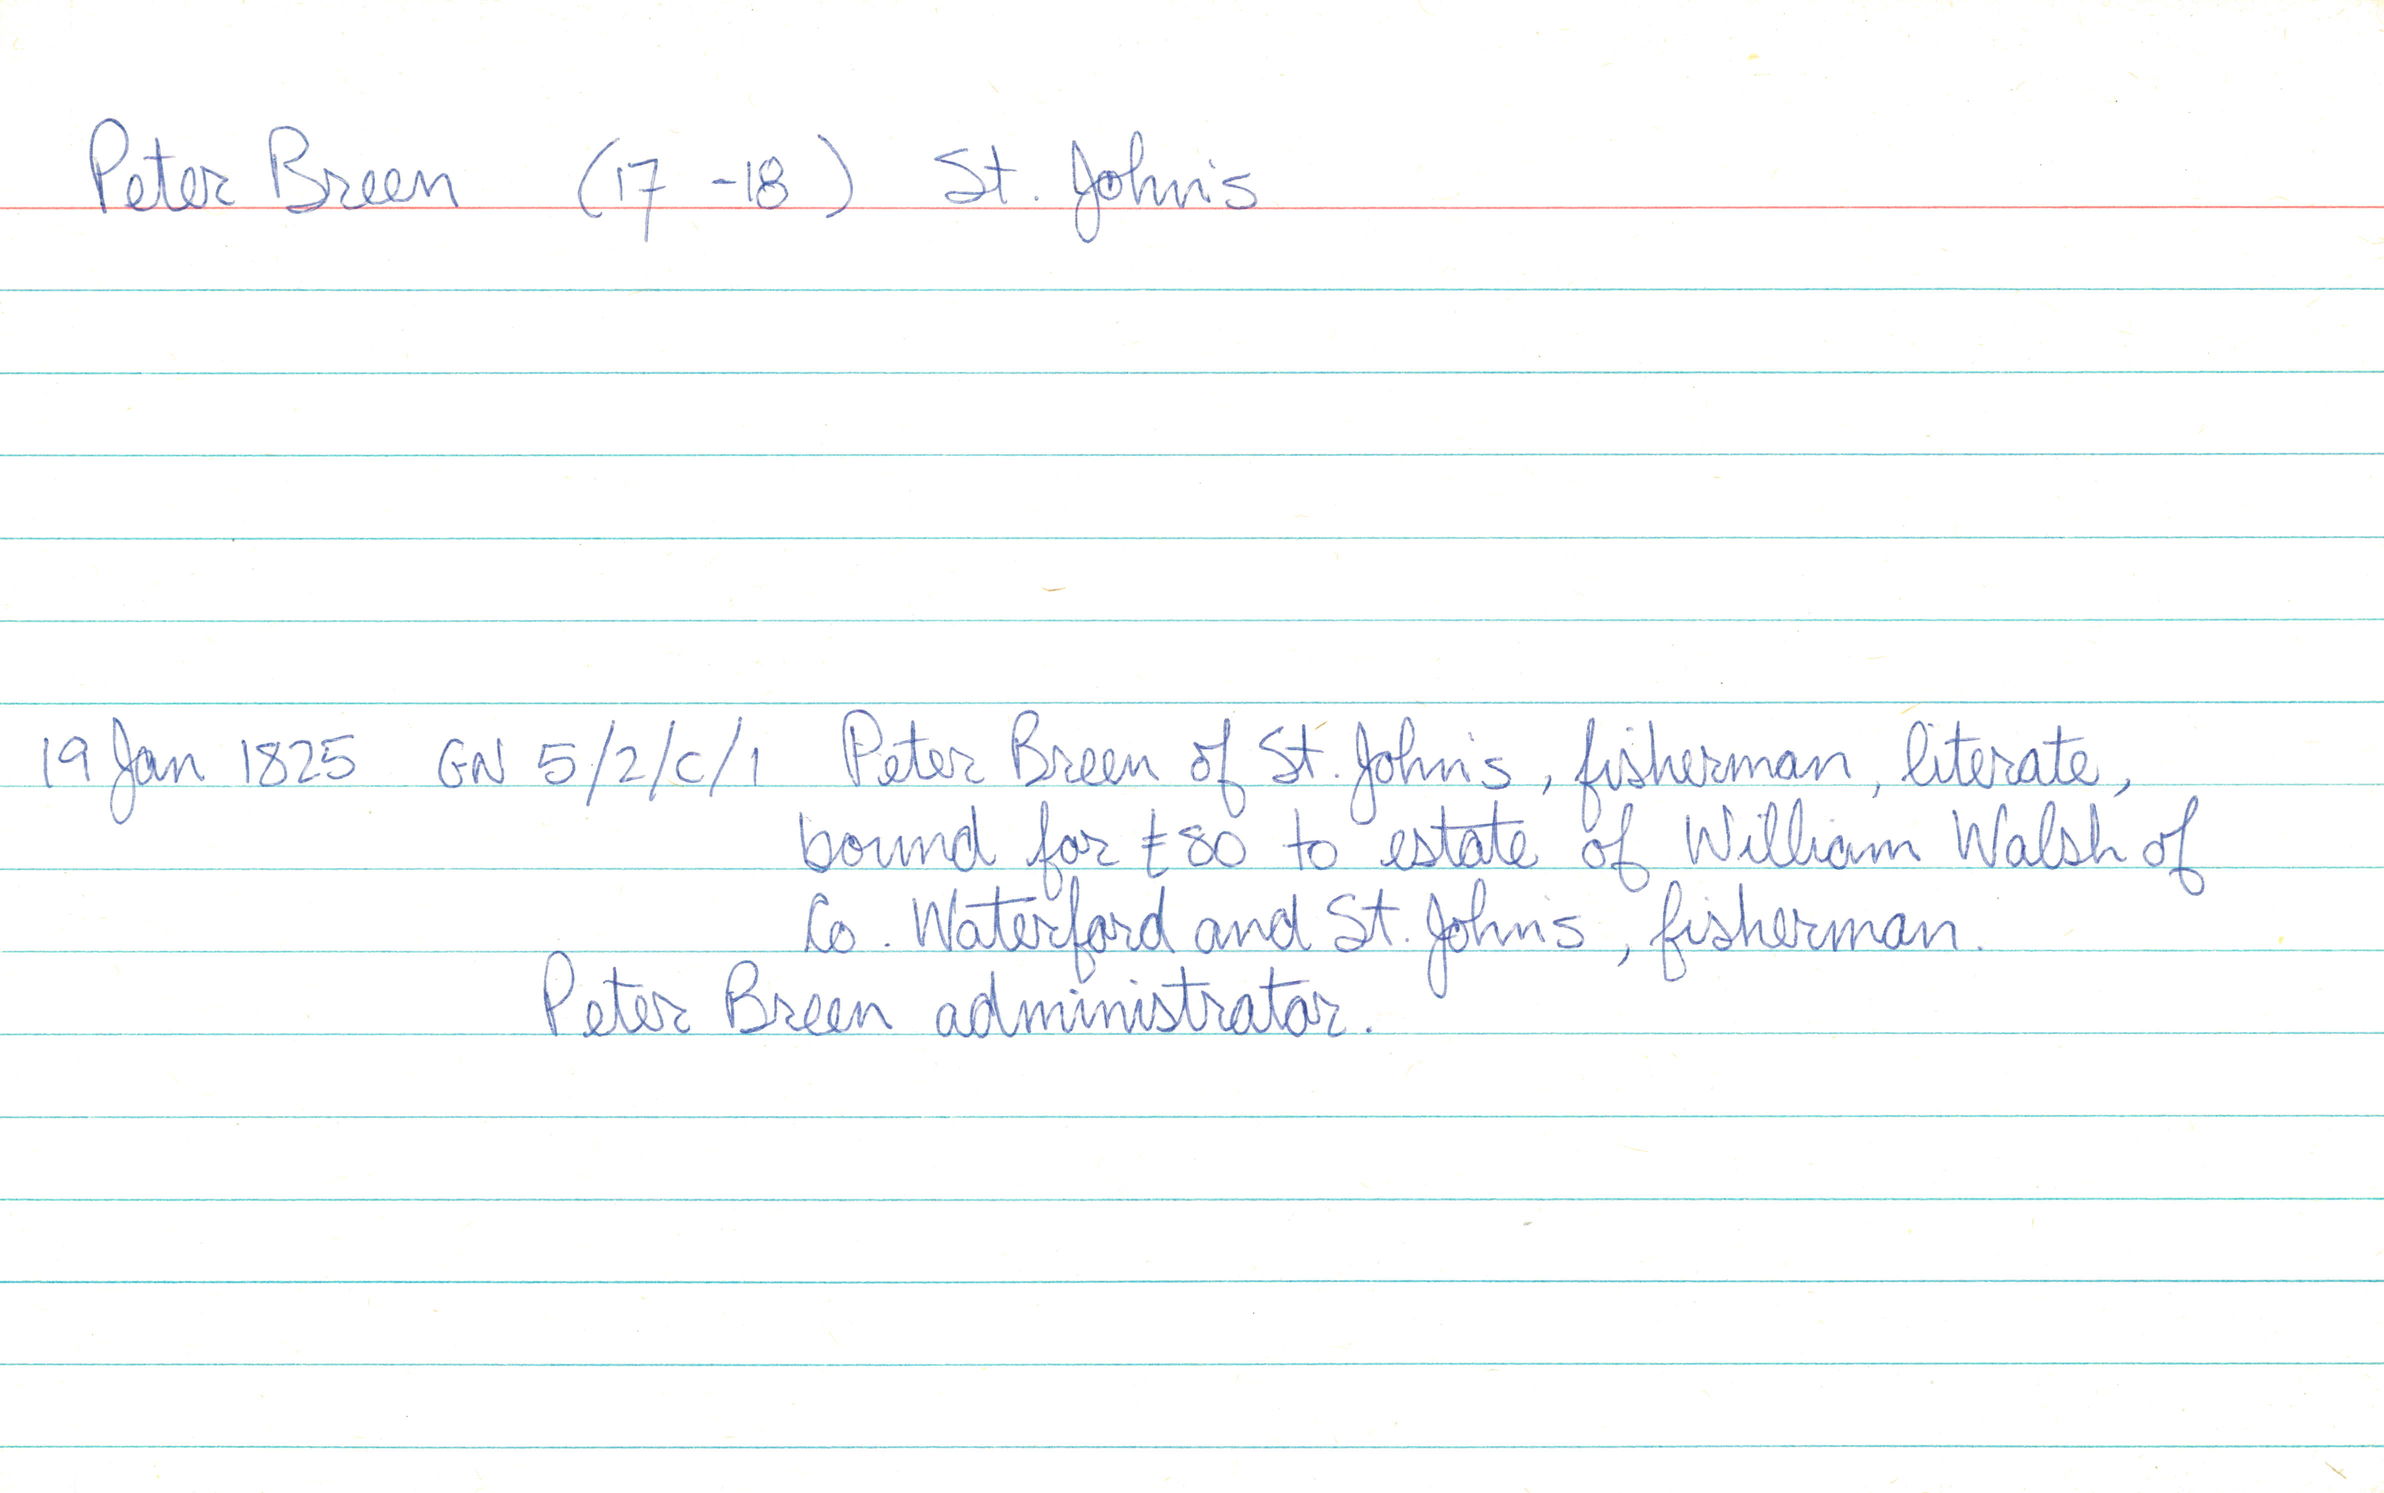 Peter Breen (17 -18 ) St. John's
19 Jan 1825 GN 5/2/C/1 Peter Breen of St. John's, fisherman, literate,
bound for £80 to estate of William Walsh of
Co. Waterford and St. John's, fisherman.
Peter Breen administrator.